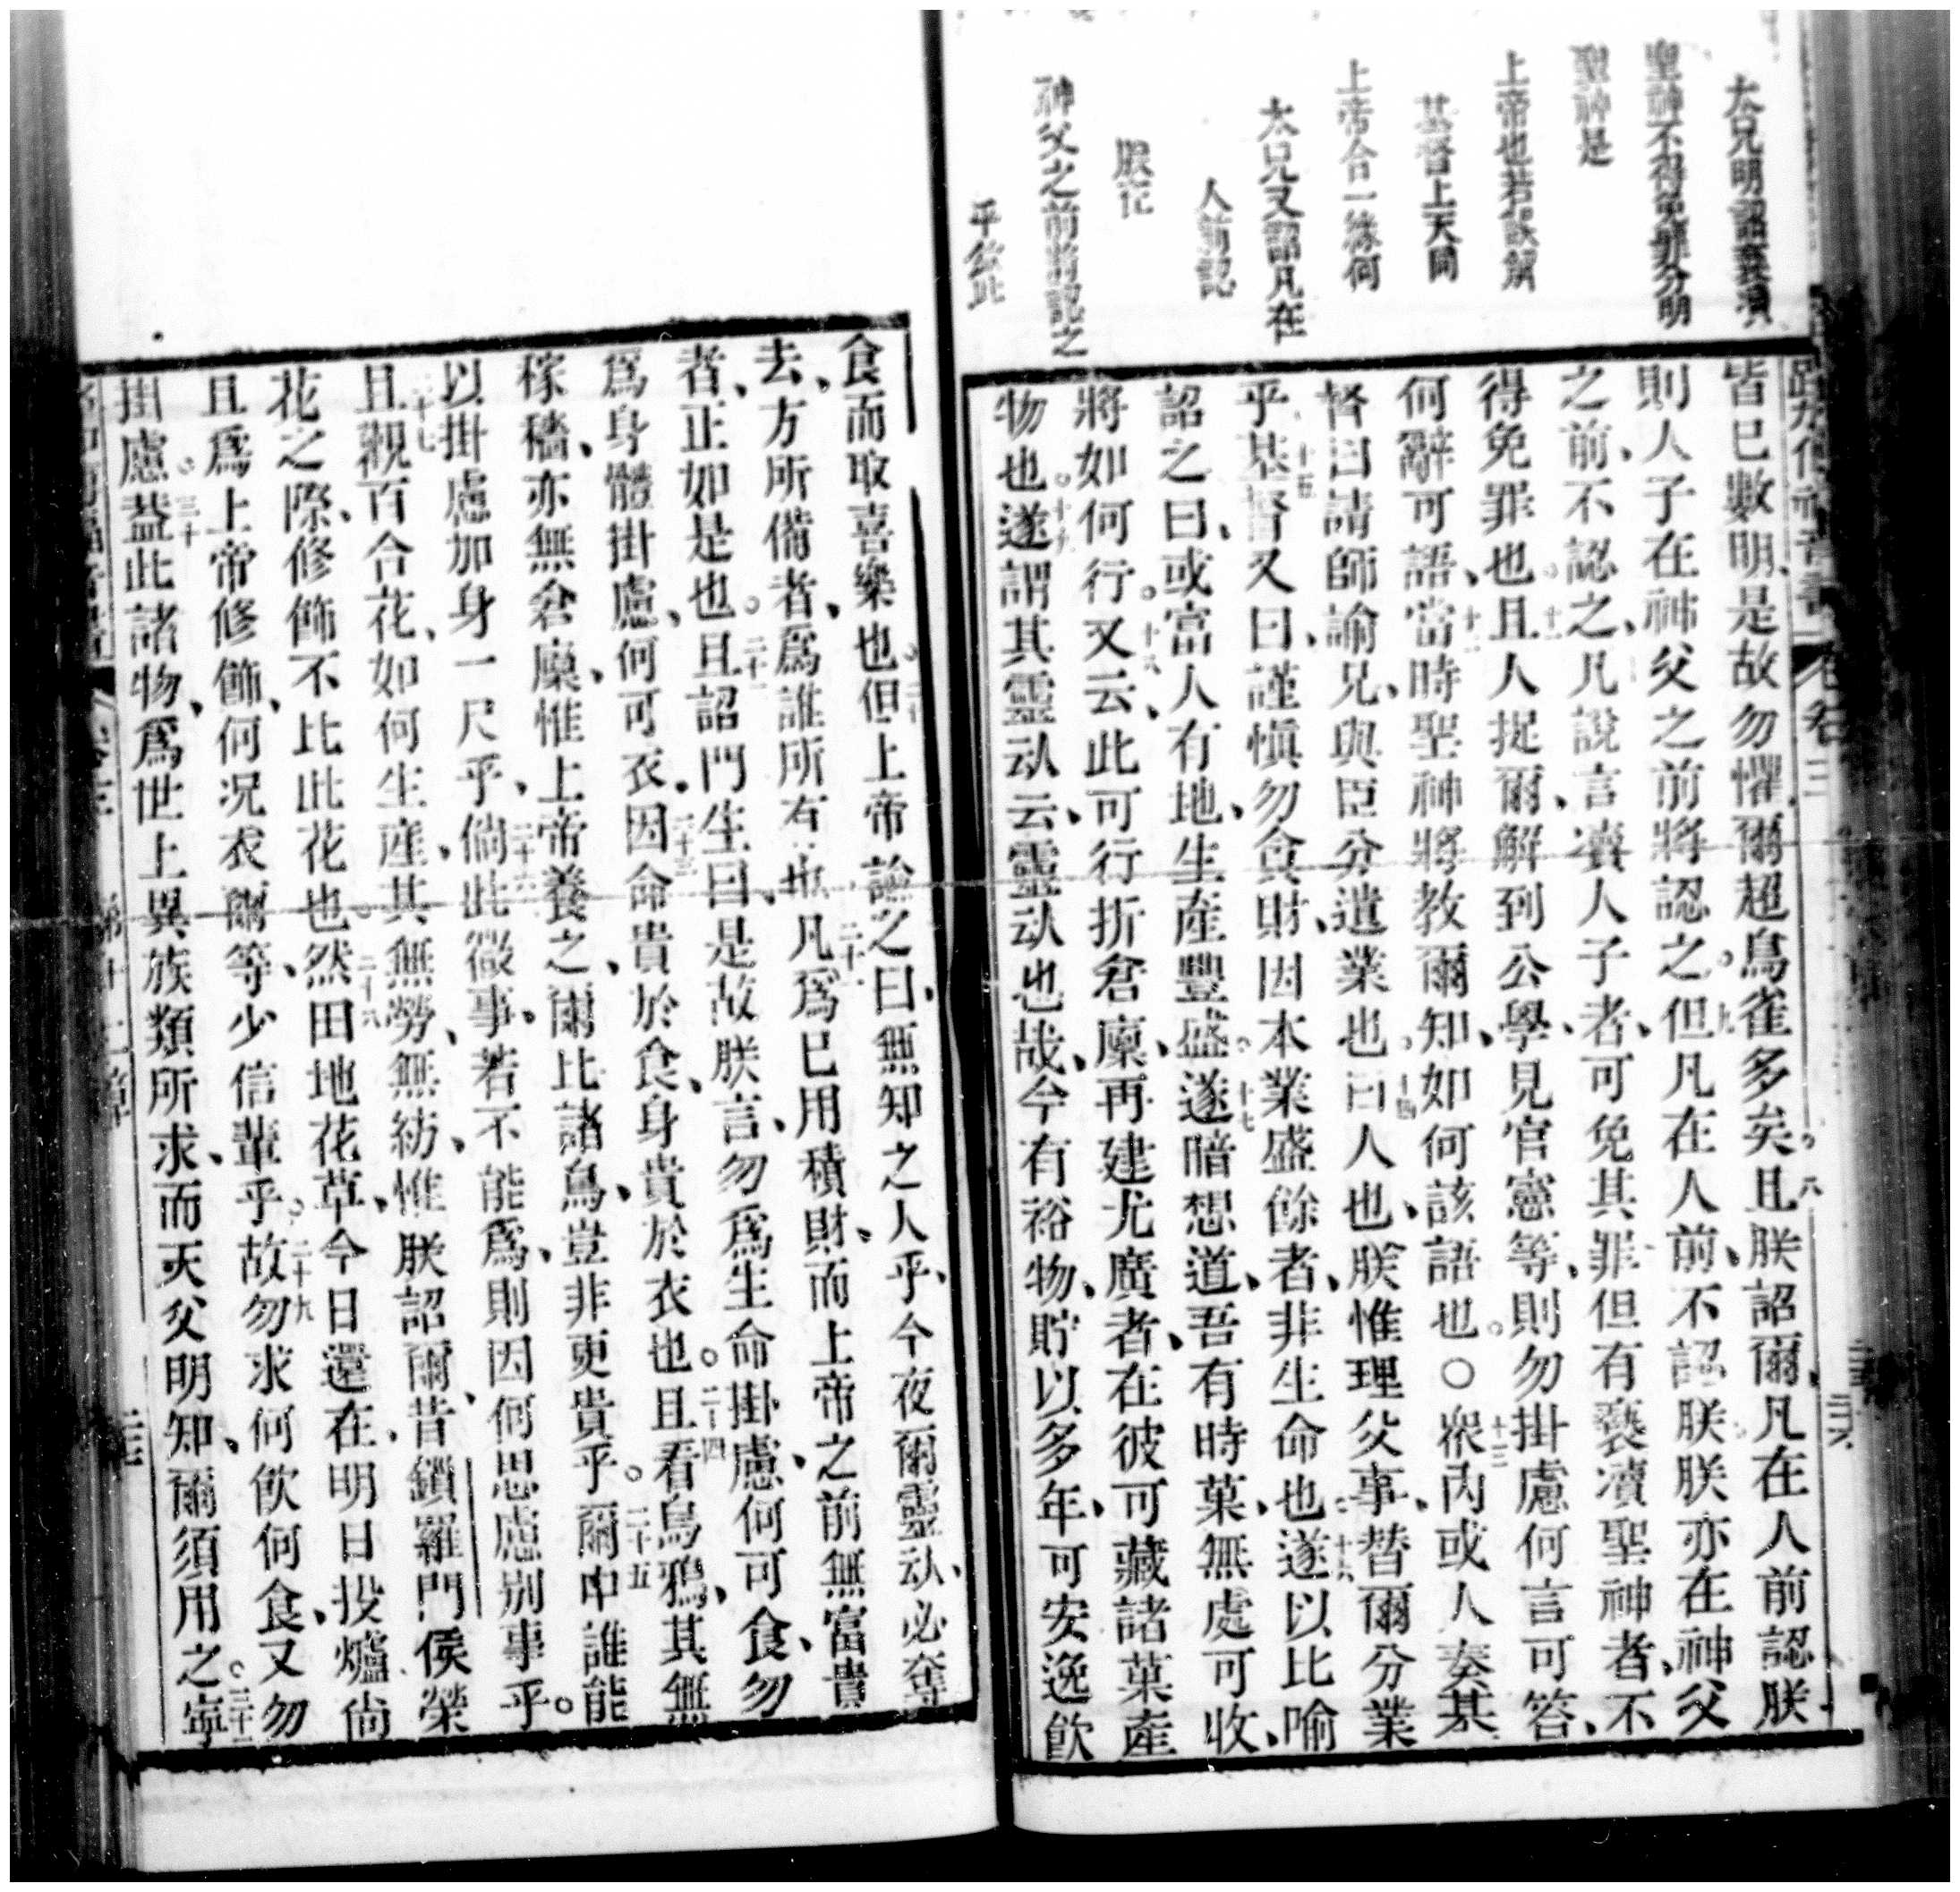 太兄明詔褻瀆
聖神不得免罪分明
聖神是
上帝也若誤解
基督上天同
上帝合一緣何
太兄又詔凡在
人前認
朕在
神父之前將認之
乎欽此
卷三
皆已數明、是故勿懼、爾超鳥雀多矣。八且朕詔爾、凡在人前認朕、
則人子在神父之前將認之。九但凡在人前、不認朕、朕亦在神父
之前、不認之、凡說言瀆人子者、可免其罪、但有褻瀆聖神者、不
得免罪也。十一且人捉爾、解到公學、見官憲等、則勿掛慮何言可答、
何辭可語、十二當時聖神將教爾知、如何該語也。○十三衆內或人奏基
督曰、請師諭兄、與臣分遺業也。十四曰、人也、朕惟理父事、替爾分業
乎、十五基督又曰、謹愼勿貪財、因本業盛餘者、非生命也。十六遂以比喻
詔之曰、或富人有地、生產豐盛。十七遂暗想道、吾有時菓、無處可收、
將如何行。十八又云、此可行、折倉廩、再建尤廣者、在彼可藏諸菓產
物也。十九遂謂其靈㓜云、靈㓜也哉、今有裕物、貯以多年、可安逸飲
食而取喜樂也。二十但上帝諭之曰、無知之人乎、今夜爾靈㓜、必奪
去、方所備者、爲誰所有也、二十一凡爲己用積財、而上帝之前無富貴
者、正如是也。二十二且詔門生曰、是故朕言、勿爲生命掛慮、何可食、勿
爲身體掛慮、何可衣。二十三因命貴於食、身貴於衣也。二十四且看烏鴉、其無
稼穡、亦無倉廩、惟上帝養之、爾比諸鳥、豈非更貴乎。二十五爾中誰能
以掛慮加身一尺乎、二十六倘此微事、若不能爲、則因何思慮别事乎。
二十七且觀百合花、如何生產、其無勞、無紡、惟朕詔爾、昔鎖羅門侯榮
花之際、修飾不比此花也。二十八然田地花草、今日還在、明日投爐、尙
且爲上帝修飾、何况衣爾等、少信輩乎。二十九故勿求何飲何食、又勿
掛慮。三十葢此諸物、爲世上異族類所求、而天父明知、爾須用之。三十一寜